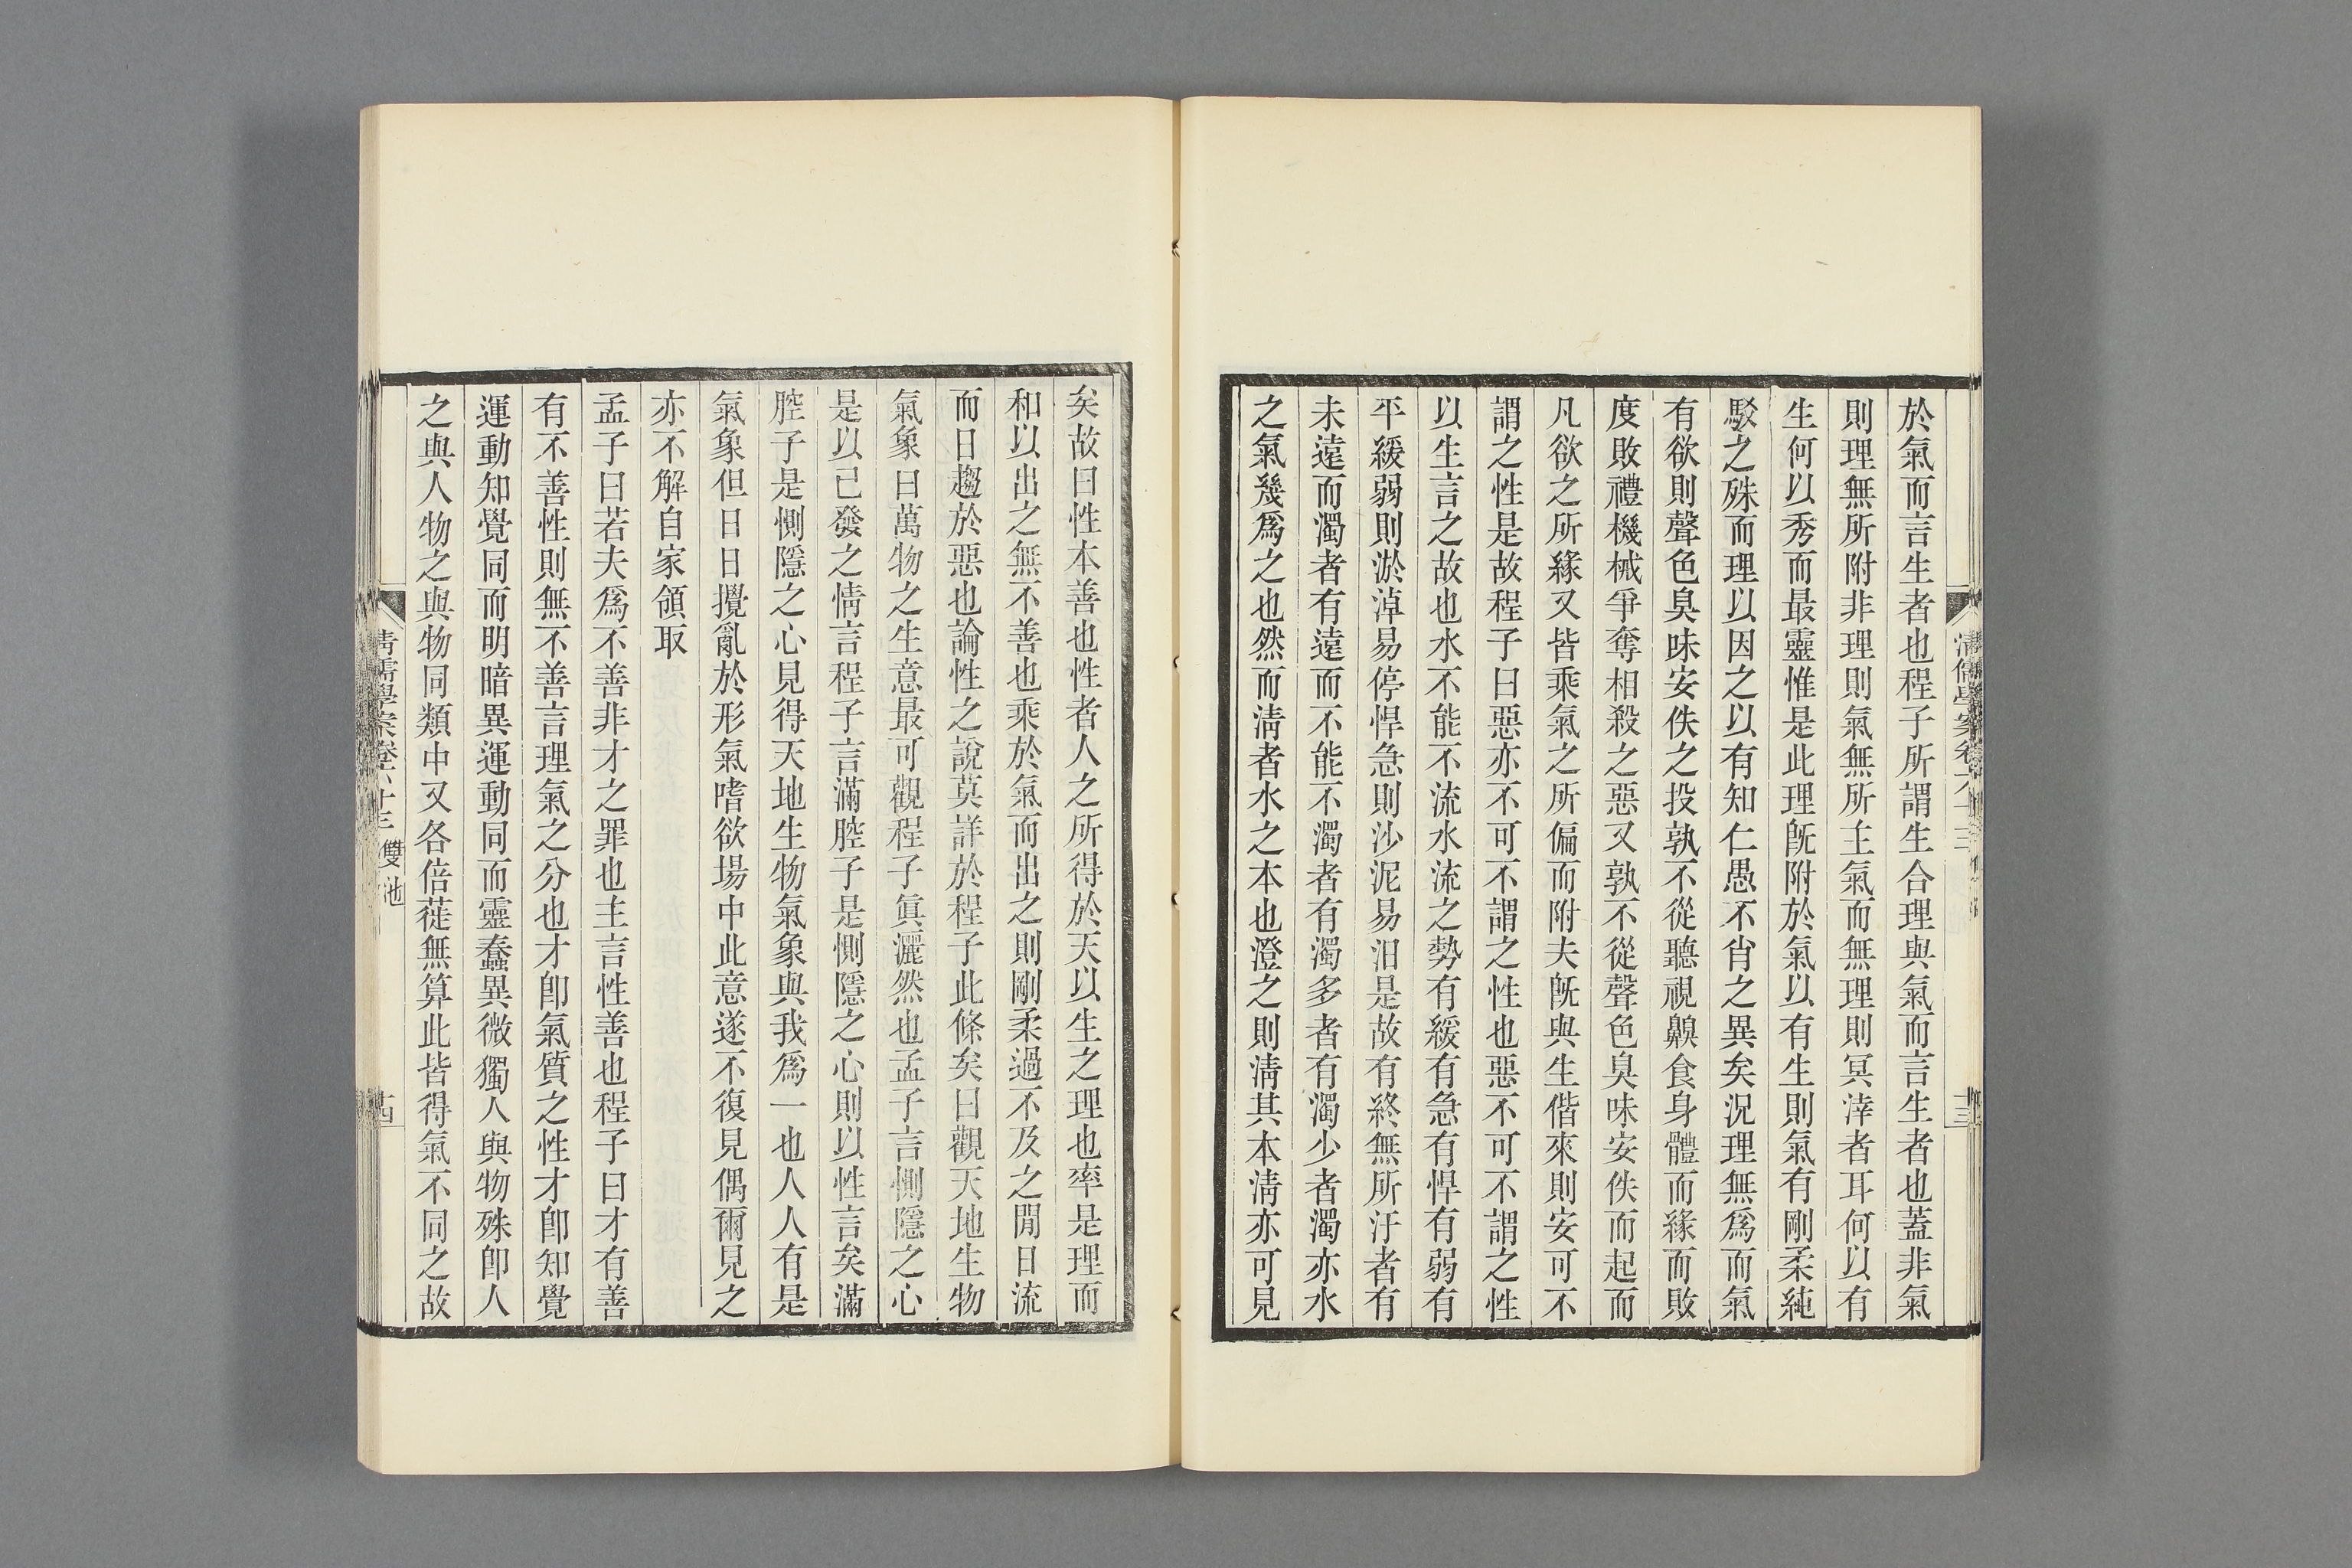 於氣而言生者也程子所謂生合理與氣而言生者也蓋非氣
則理無所附非理則氣無所主氣而無理則冥涬者耳何以有
生何以秀而最靈惟是此理旣附於氣以有生則氣有剛柔純
駁之殊而理以因之以有知仁愚不肖之異矣況理無爲而氣
有欲則聲色臭味安佚之投孰不從聽視鼻食身體而緣而敗
度敗禮機械爭奪相殺之惡又孰不從聲色臭味安佚而起而
凡欲之所緣又皆乘氣之所偏而附夫旣與生偕來則安可不
謂之性是故程子曰惡亦不可不謂之性也惡不可不謂之性
以生言之故也水不能不流水流之勢有緩有急有悍有弱有
平緩弱則淤淖易停悍急則沙泥易汨是故有終無所汙者有
未遠而濁者有遠而不能不濁者有濁多者有濁少者濁亦水
之氣幾爲之也然而淸者水之本也澄之則淸其本淸亦可見
淸儒學案卷六十三
十三
矣故曰性本善也性者人之所得於天以生之理也率是理而
和以出之無不善也乘於氣而出之則剛柔過不及之閒日流
而日趨於惡也論性之說莫詳於程子此條矣曰觀天地生物
氣象曰萬物之生意最可觀程子眞灑然也孟子言惻隱之心
是以已發之情言程子言滿腔子是惻隱之心則以性言矣滿
腔子是惻隱之心見得天地生物氣象與我爲一也人人有是
氣象但日日攪亂於形氣嗜欲場中此意遂不復見偶爾見之
亦不解自家領取
孟子曰若夫爲不善非才之罪也主言性善也程子曰才有善
有不善性則無不善言理氣之分也才卽氣質之性才卽知覺
運動知覺同而明暗異運動同而靈蠢異微獨人與物殊卽人
之與人物之與物同類中又各倍蓰無算此皆得氣不同之故
淸儒學案卷六十三 雙池
十四